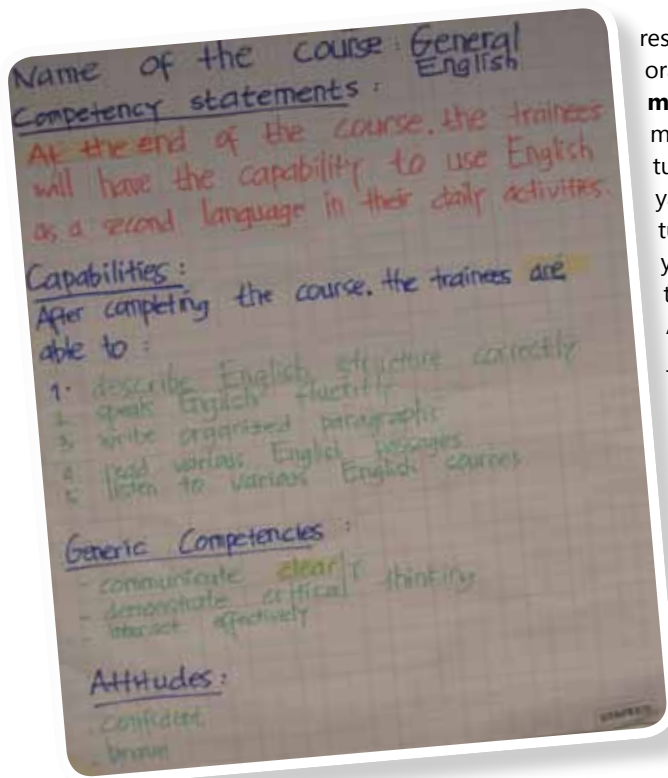 Name of the course: General
English
Competency statements:
At the end of the course, the trainees
will have the capability to use English
as a second language in their daily activities.
Capabilities:
After completing the course, the trainees are
able to:
1. describe English structure correctly
2. speak English fluently
3. write organized paragraphs
4. read various English passages
5. listen to various English courses
Generic Competencies:
- communicate clearly
- demonstrate critical thinking
- interact effectively
Attitudes:
. confident
res
or
m
m
tu
y
tu
y
t